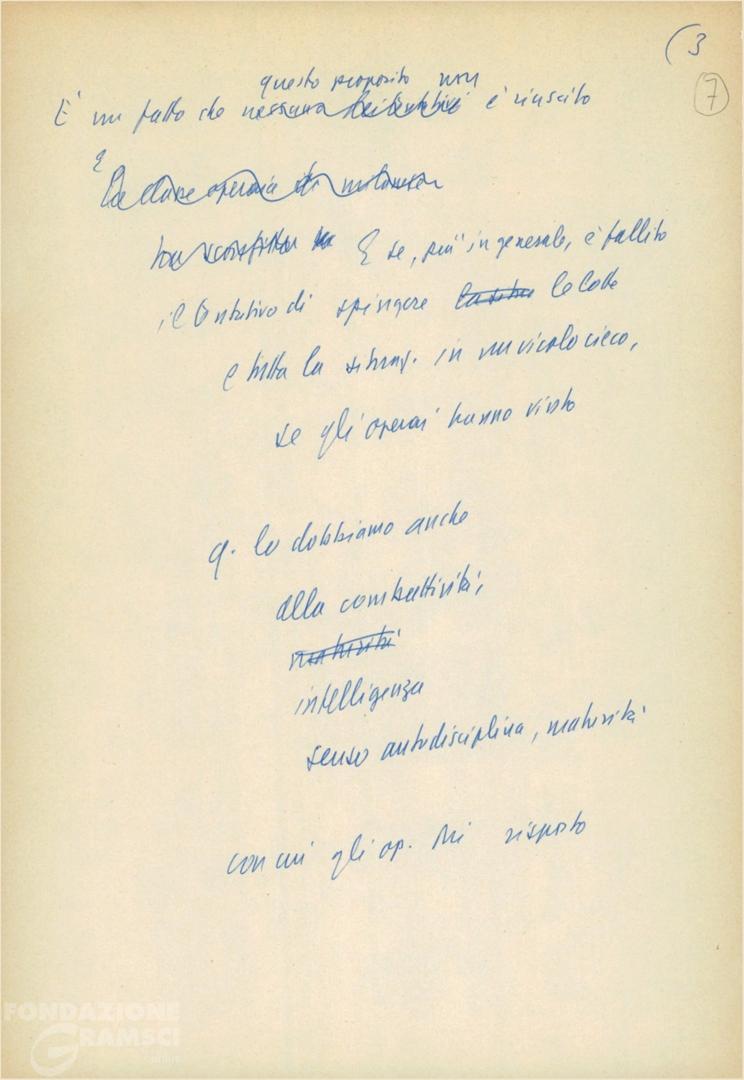 (3
7
questo proposito non
È un fatto che nessuno dei tentativi è riuscito
E
La classe operaia di milanese
E se, più in generale, è fallito
il tentativo di spingere le lotte
e tutta la situaz. in un vicolo cieco,
se gli operai hanno vinto
q. lo dobbiamo anche
alla combattività,
maturità
intelligenza
senso autodisciplina, maturità
con cui gli op. Mi risposto
FONDAZIONE
GRAMSCI